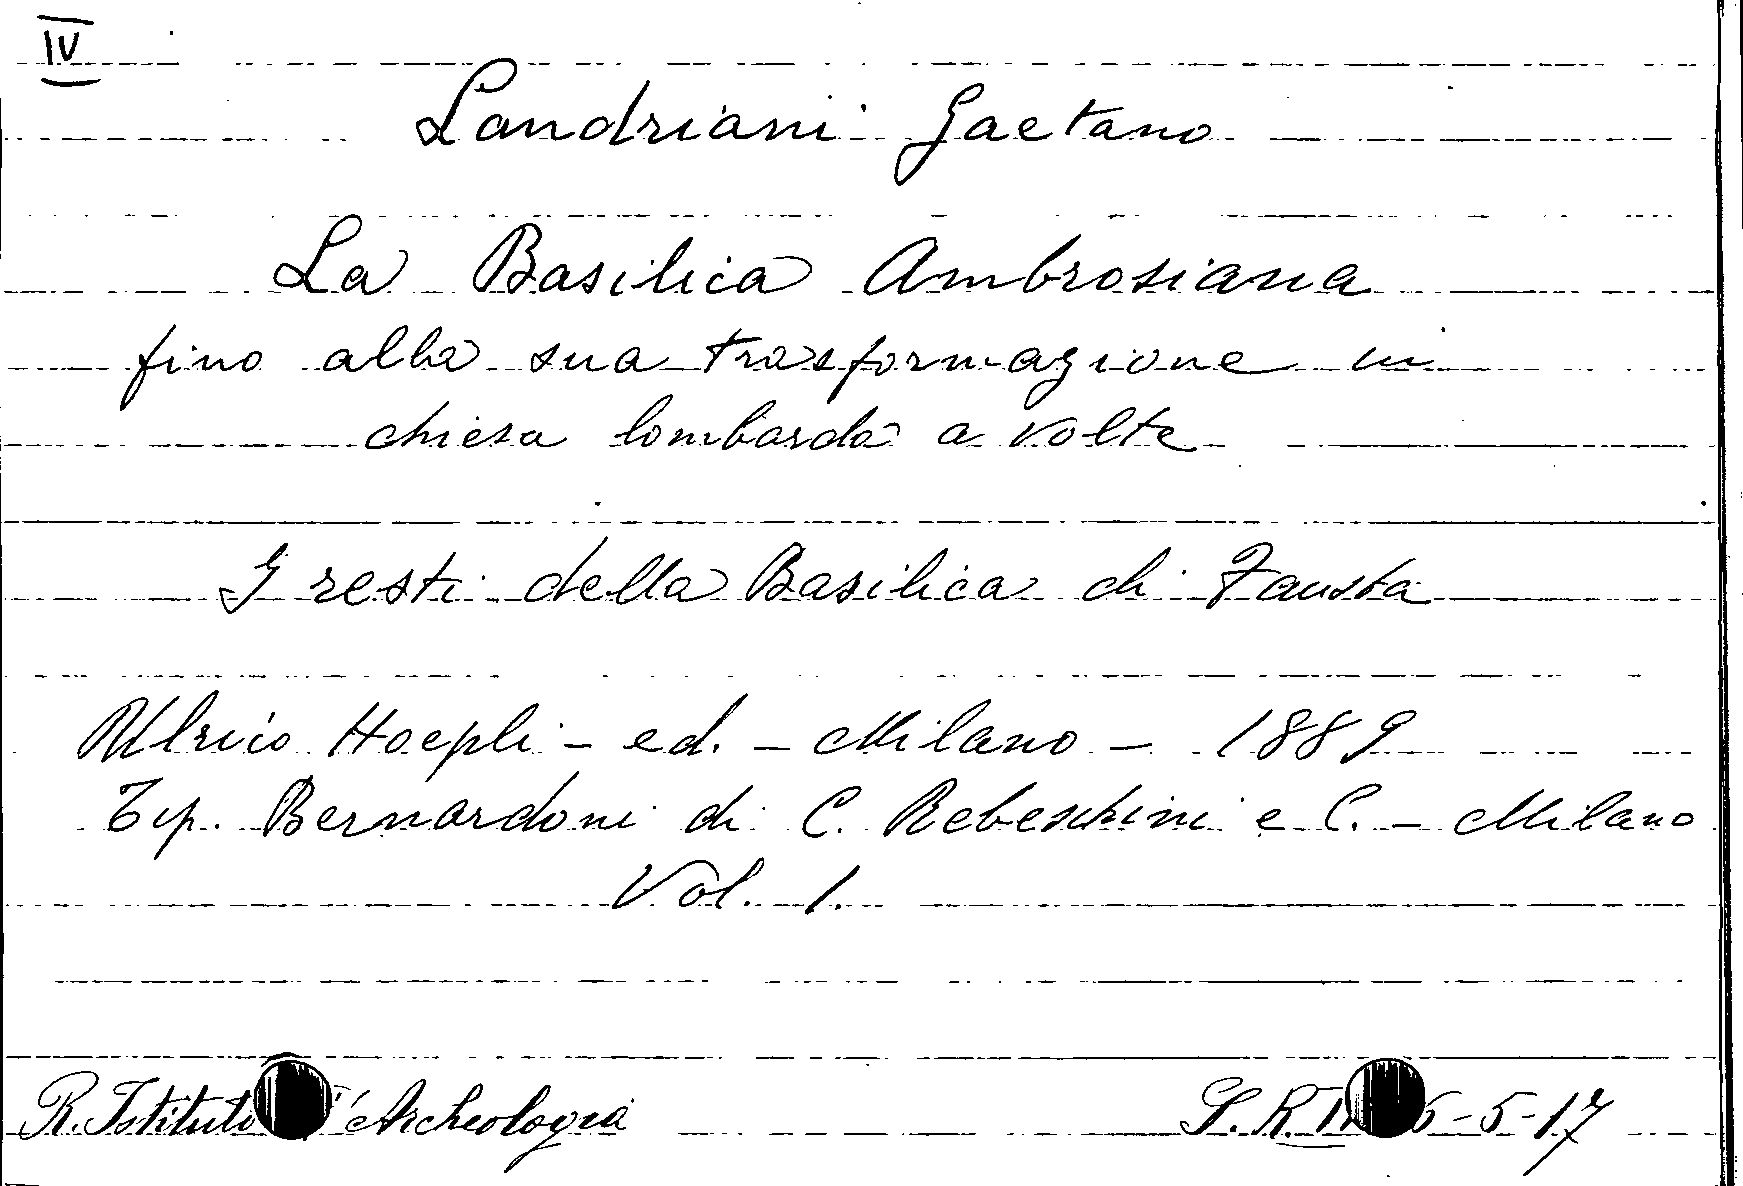 IV
Landriani Gaetano
La Basilica Ambrosiana
fino alla sua trasformazione in
chiesa lombarda a volte
I resti della Basilica di Fausta
Ulrico Hoepli - ed. - Milano - 1889
Tip. Bernardoni di C. Rebeschini e C. - Milano
Vol. 1.
R. Istituto Archeologia S. R. 5-5-17